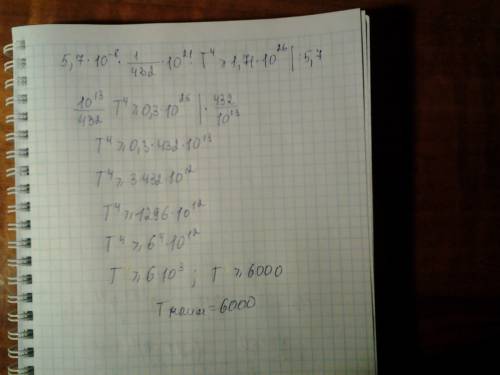 5,7·10⁻⁸·1/432·10²¹·T⁴⩾1,71·10²⁶|:5,7
10¹³/432 T⁴⩾0,3·10²⁶|·432/10¹³
T⁴⩾0,3·432·10¹³
T⁴⩾3·432·10¹²
T⁴⩾1296·10¹²
T⁴⩾6⁴·10¹²
T⩾6·10³; T⩾6000
T наим=6000